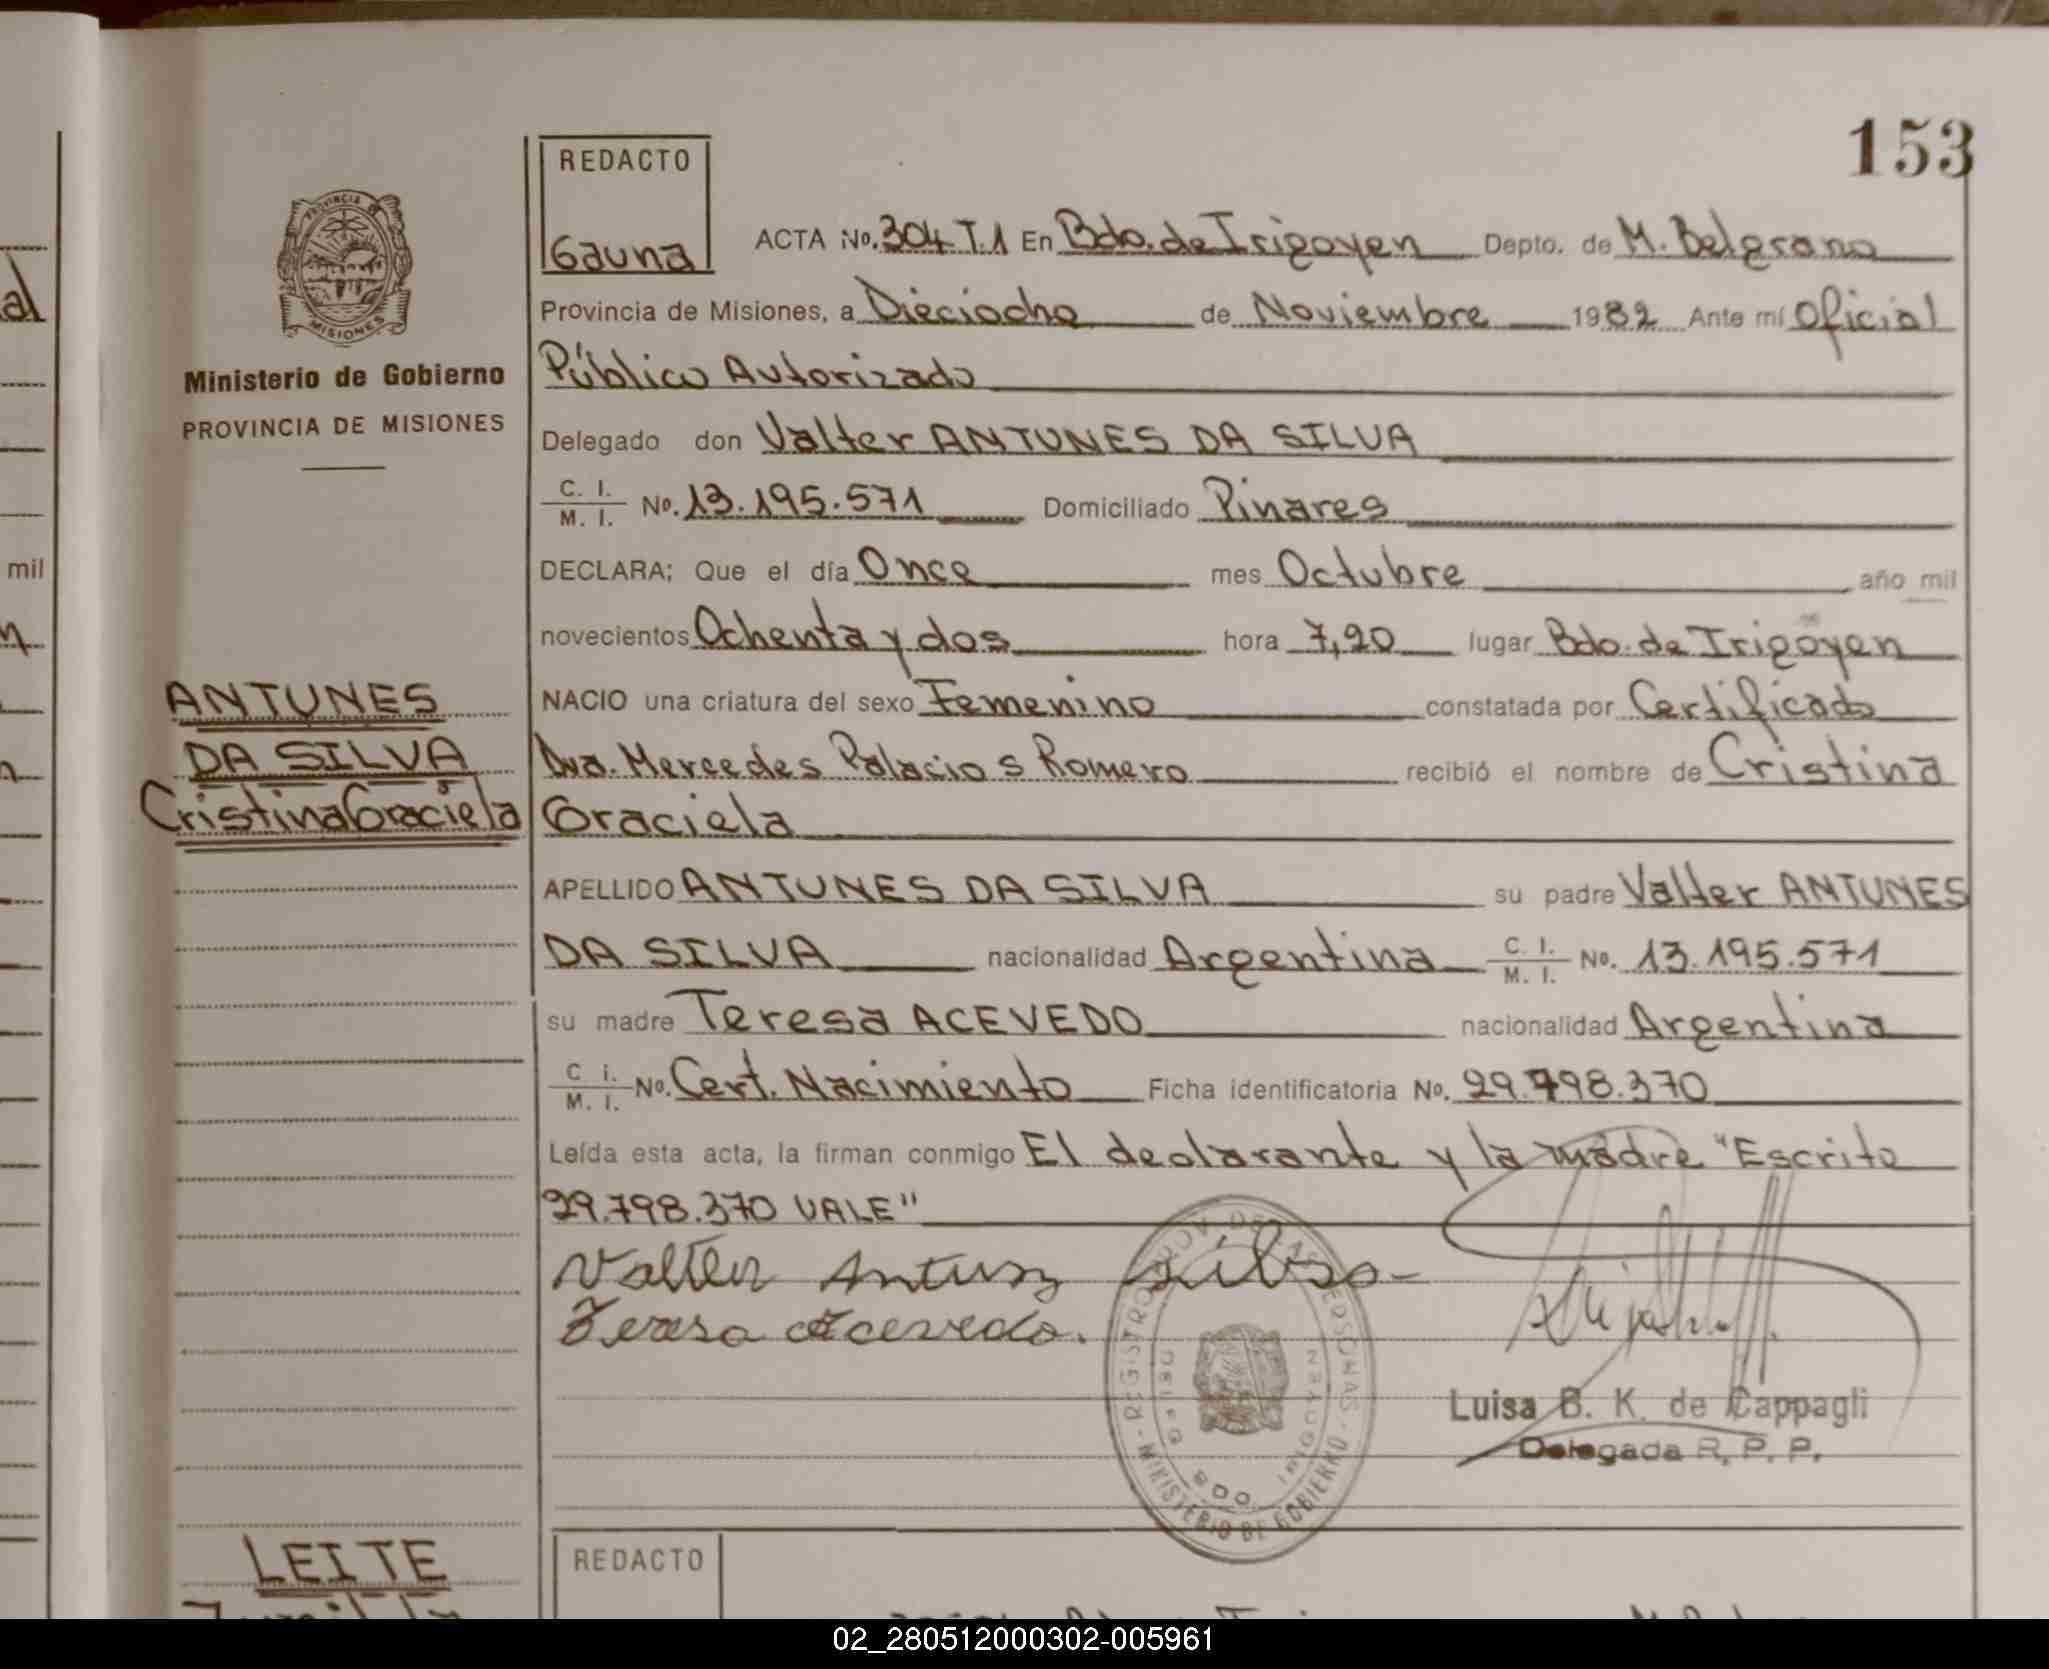 153
REDACTO
Gauna
PROVINCIA DE
MISIONES
Ministerio de Gobierno
PROVINCIA DE MISIONES
ACTA No. 304 T.1 En Bdo. de Irigoyen Depto. de M. Belgrano
Provincia de Misiones, a Dieciocho de Noviembre 1982 Ante mí Oficial
Público Autorizado
Delegado don Valter ANTUNES DA SILVA
C. I. / M. I. No. 13.195.571 Domiciliado Pinares
DECLARA; Que el día Once mes Octubre año mil
novecientos Ochenta y dos hora 7,20 lugar Bdo. de Irigoyen
NACIO una criatura del sexo Femenino constatada por Certificado
Dra. Mercedes Palacios Romero recibió el nombre de Cristina
Graciela
APELLIDO ANTUNES DA SILVA su padre Valter ANTUNES
DA SILVA nacionalidad Argentina C. I. / M. I. No. 13.195.571
su madre Teresa ACEVEDO nacionalidad Argentina
C i. / M. I. No. Cert. Nacimiento Ficha identificatoria No. 29.798.370
Leída esta acta, la firman conmigo El declarante y la madre "Escrito
29.798.370 VALE"
Valter Antunz silva
Teresa Acevedo.
Luisa B. K. de Cappagli
Delegada R. P. P.
REGISTRO PROV. DE LAS PERSONAS - MINISTERIO DE GOBIERNO
BDO. IRIGOYEN
ANTUNES
DA SILVA
Cristina Graciela
LEITE
REDACTO
mil
02_280512000302-005961